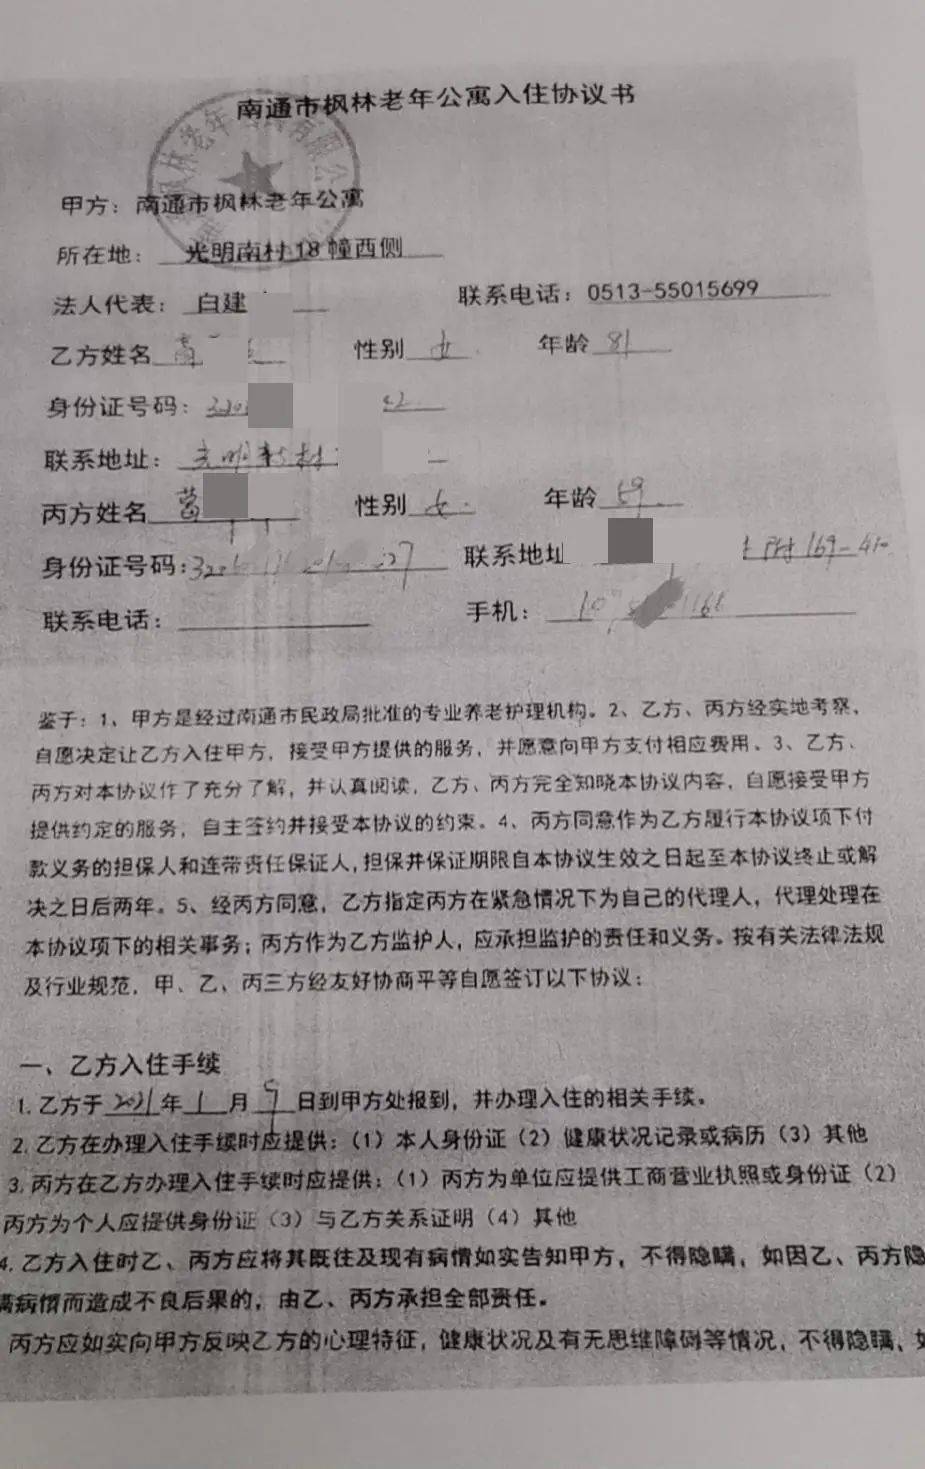 南通市枫林老年公寓入住协议书
甲方：南通市枫林老年公寓
所在地：光明南村18幢西侧
法人代表：白建 联系电话：0513-55015699
乙方姓名 性别 女 年龄 81
身份证号码：
联系地址：光明新村
丙方姓名 葛 性别 女 年龄 59
身份证号码： 联系地址 附169-410
联系电话： 手机：
鉴于：1、甲方是经过南通市民政局批准的专业养老护理机构。2、乙方、丙方经实地考察，
自愿决定让乙方入住甲方，接受甲方提供的服务，并愿意向甲方支付相应费用。3、乙方、
丙方对本协议作了充分了解，并认真阅读，乙方、丙方完全知晓本协议内容，自愿接受甲方
提供约定的服务，自主签约并接受本协议的约束。4、丙方同意作为乙方履行本协议项下付
款义务的担保人和连带责任保证人，担保并保证期限自本协议生效之日起至本协议终止或解
决之日后两年。5、经丙方同意，乙方指定丙方在紧急情况下为自己的代理人，代理处理在
本协议项下的相关事务；丙方作为乙方监护人，应承担监护的责任和义务。按有关法律法规
及行业规范，甲、乙、丙三方经友好协商平等自愿签订以下协议：
一、乙方入住手续
1. 乙方于2021年1月9日到甲方处报到，并办理入住的相关手续。
2. 乙方在办理入住手续时应提供：（1）本人身份证（2）健康状况记录或病历（3）其他
3. 丙方在乙方办理入住手续时应提供：（1）丙方为单位应提供工商营业执照或身份证（2）
丙方为个人应提供身份证（3）与乙方关系证明（4）其他
4. 乙方入住时乙、丙方应将其既往及现有病情如实告知甲方，不得隐瞒，如因乙、丙方隐
瞒病情而造成不良后果的，由乙、丙方承担全部责任。
丙方应如实向甲方反映乙方的心理特征，健康状况及有无思维障碍等情况，不得隐瞒，如